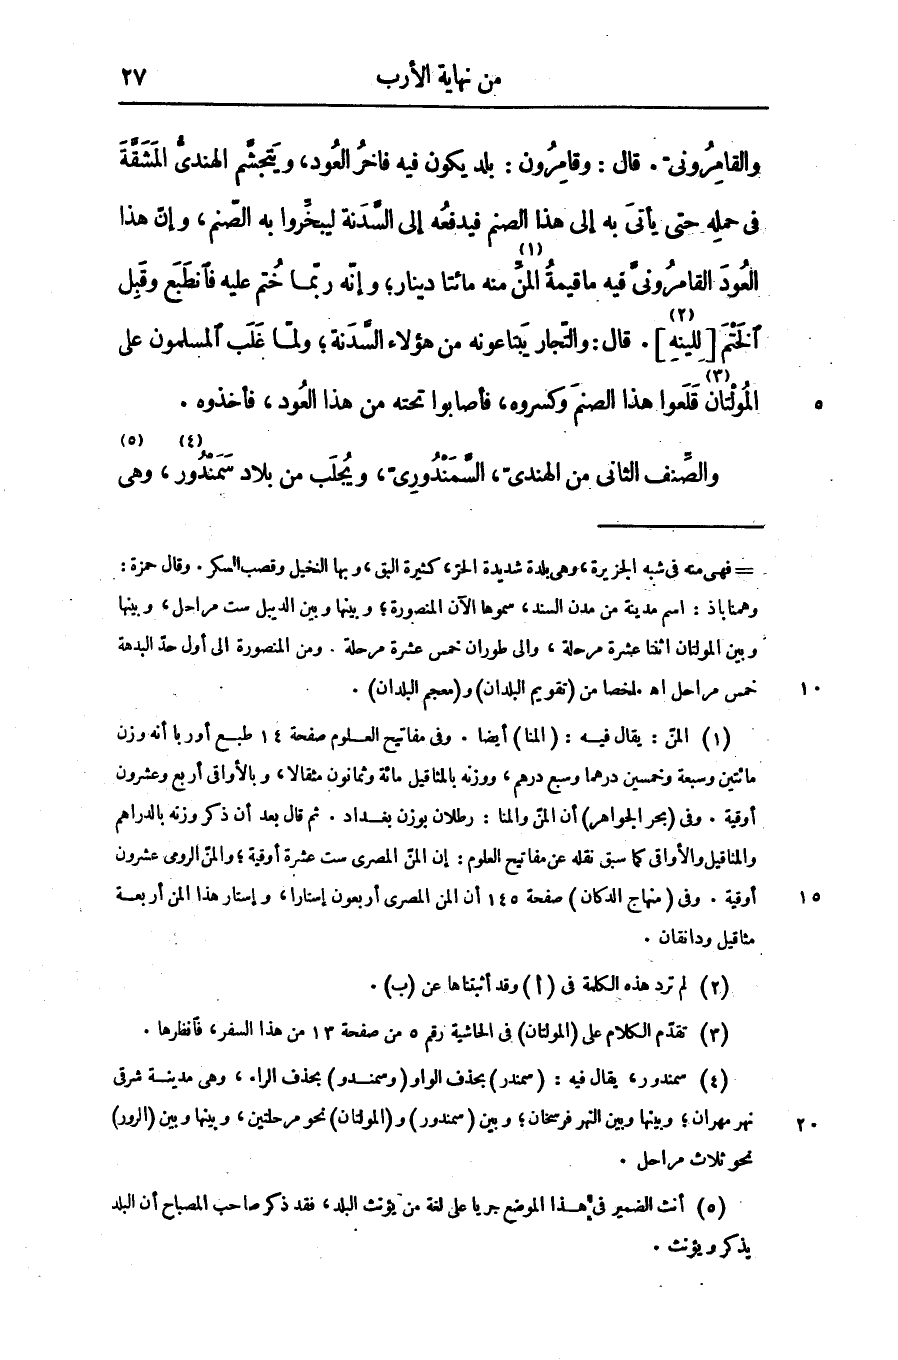 من نهاية الأرب ٢٧
والقامِرُونىّ. قال : وقامِرُون : بلد يكون فيه فاخرُ العُود، ويَتجشَّم الهندىُّ المَشَقَّةَ
فى حمله حتى يأتىَ به إلى هذا الصنم فيدفعُه إلى السَّدَنة ليبخِّروا به الصّنم، وإنّ هذا
العُودَ القامِرُونىَّ فيه ما قيمةُ المَنِّ (١) منه مائتا دينار؛ وإنّه ربّما خُتم عليه فٱنطَبَع وقَبِل
ٱلخَتْمَ [لِلينِهِ] (٢). قال: والتّجار يَبتاعونه من هؤلاء السَّدَنة؛ ولمّا غَلَب ٱلمسلمون على
المُولْتان (٣) قَلَعوا هذا الصنمَ وكسروه، فأصابوا تحته من هذا العُود، فأخذوه . ٥
والصِّنف الثانى من الهندىّ، السَّمَنْدُورِىّ، ويُجلَب من بلاد سَمَنْدُور (٤)، وهى (٥)
= فهى منه فى شبه الجزيرة، وهى بلدة شديدة الحرّ، كثيرة البق، وبها النخيل وقصب السكر . وقال حمزة :
وهمناباذ : اسم مدينة من مدن السند، سموها الآن المنصورة؛ وبينها وبين الديبل ست مراحل، وبينها
وبين المولتان اثنتا عشرة مرحلة، والى طوران خمس عشرة مرحلة . ومن المنصورة الى أول حدّ البدهة
خمس مراحل اه ملخصا من (تقويم البلدان) و(معجم البلدان) . ١٠
(١) المنّ : يقال فيه : (المنا) أيضا . وفى مفاتيح العلوم صفحة ١٤ طبع أوربا أنه وزن
مائتين وسبعة وخمسين درهما وسبع درهم، ووزنه بالمثاقيل مائة وثمانون مثقالا، وبالأواقى أربع وعشرون
أوقية . وفى (بحر الجواهر) أن المنّ والمنا : رطلان بوزن بغداد . ثم قال بعد أن ذكر وزنه بالدراهم
والمثاقيل والأواقى كما سبق نقله عن مفاتيح العلوم : إن المنّ المصرى ست عشرة أوقية؛ والمنّ الرومى عشرون
أوقية . وفى (منهاج الدكان) صفحة ١٤٥ أن المن المصرى أربعون إستارا، وإستار هذا المن أربعة ١٥
مثاقيل ودانقان .
(٢) لم ترد هذه الكلمة فى (أ) وقد أثبتناها عن (ب) .
(٣) تقدّم الكلام على (المولتان) فى الحاشية رقم ٥ من صفحة ١٣ من هذا السفر، فٱنظرها .
(٤) سمندور، يقال فيه : (سمندر) بحذف الواو (وسمندو) بحذف الراء، وهى مدينة شرقى
نهر مهران؛ وبينها وبين النهر فرسخان؛ وبين (سمندور) و(المولتان) نحو مرحلتين، وبينها وبين (الرور) ٢٠
نحو ثلاث مراحل .
(٥) أنث الضمير فى هذا الموضع جريا على لغة من يؤنث البلد، فقد ذكر صاحب المصباح أن البلد
يذكر ويؤنث .